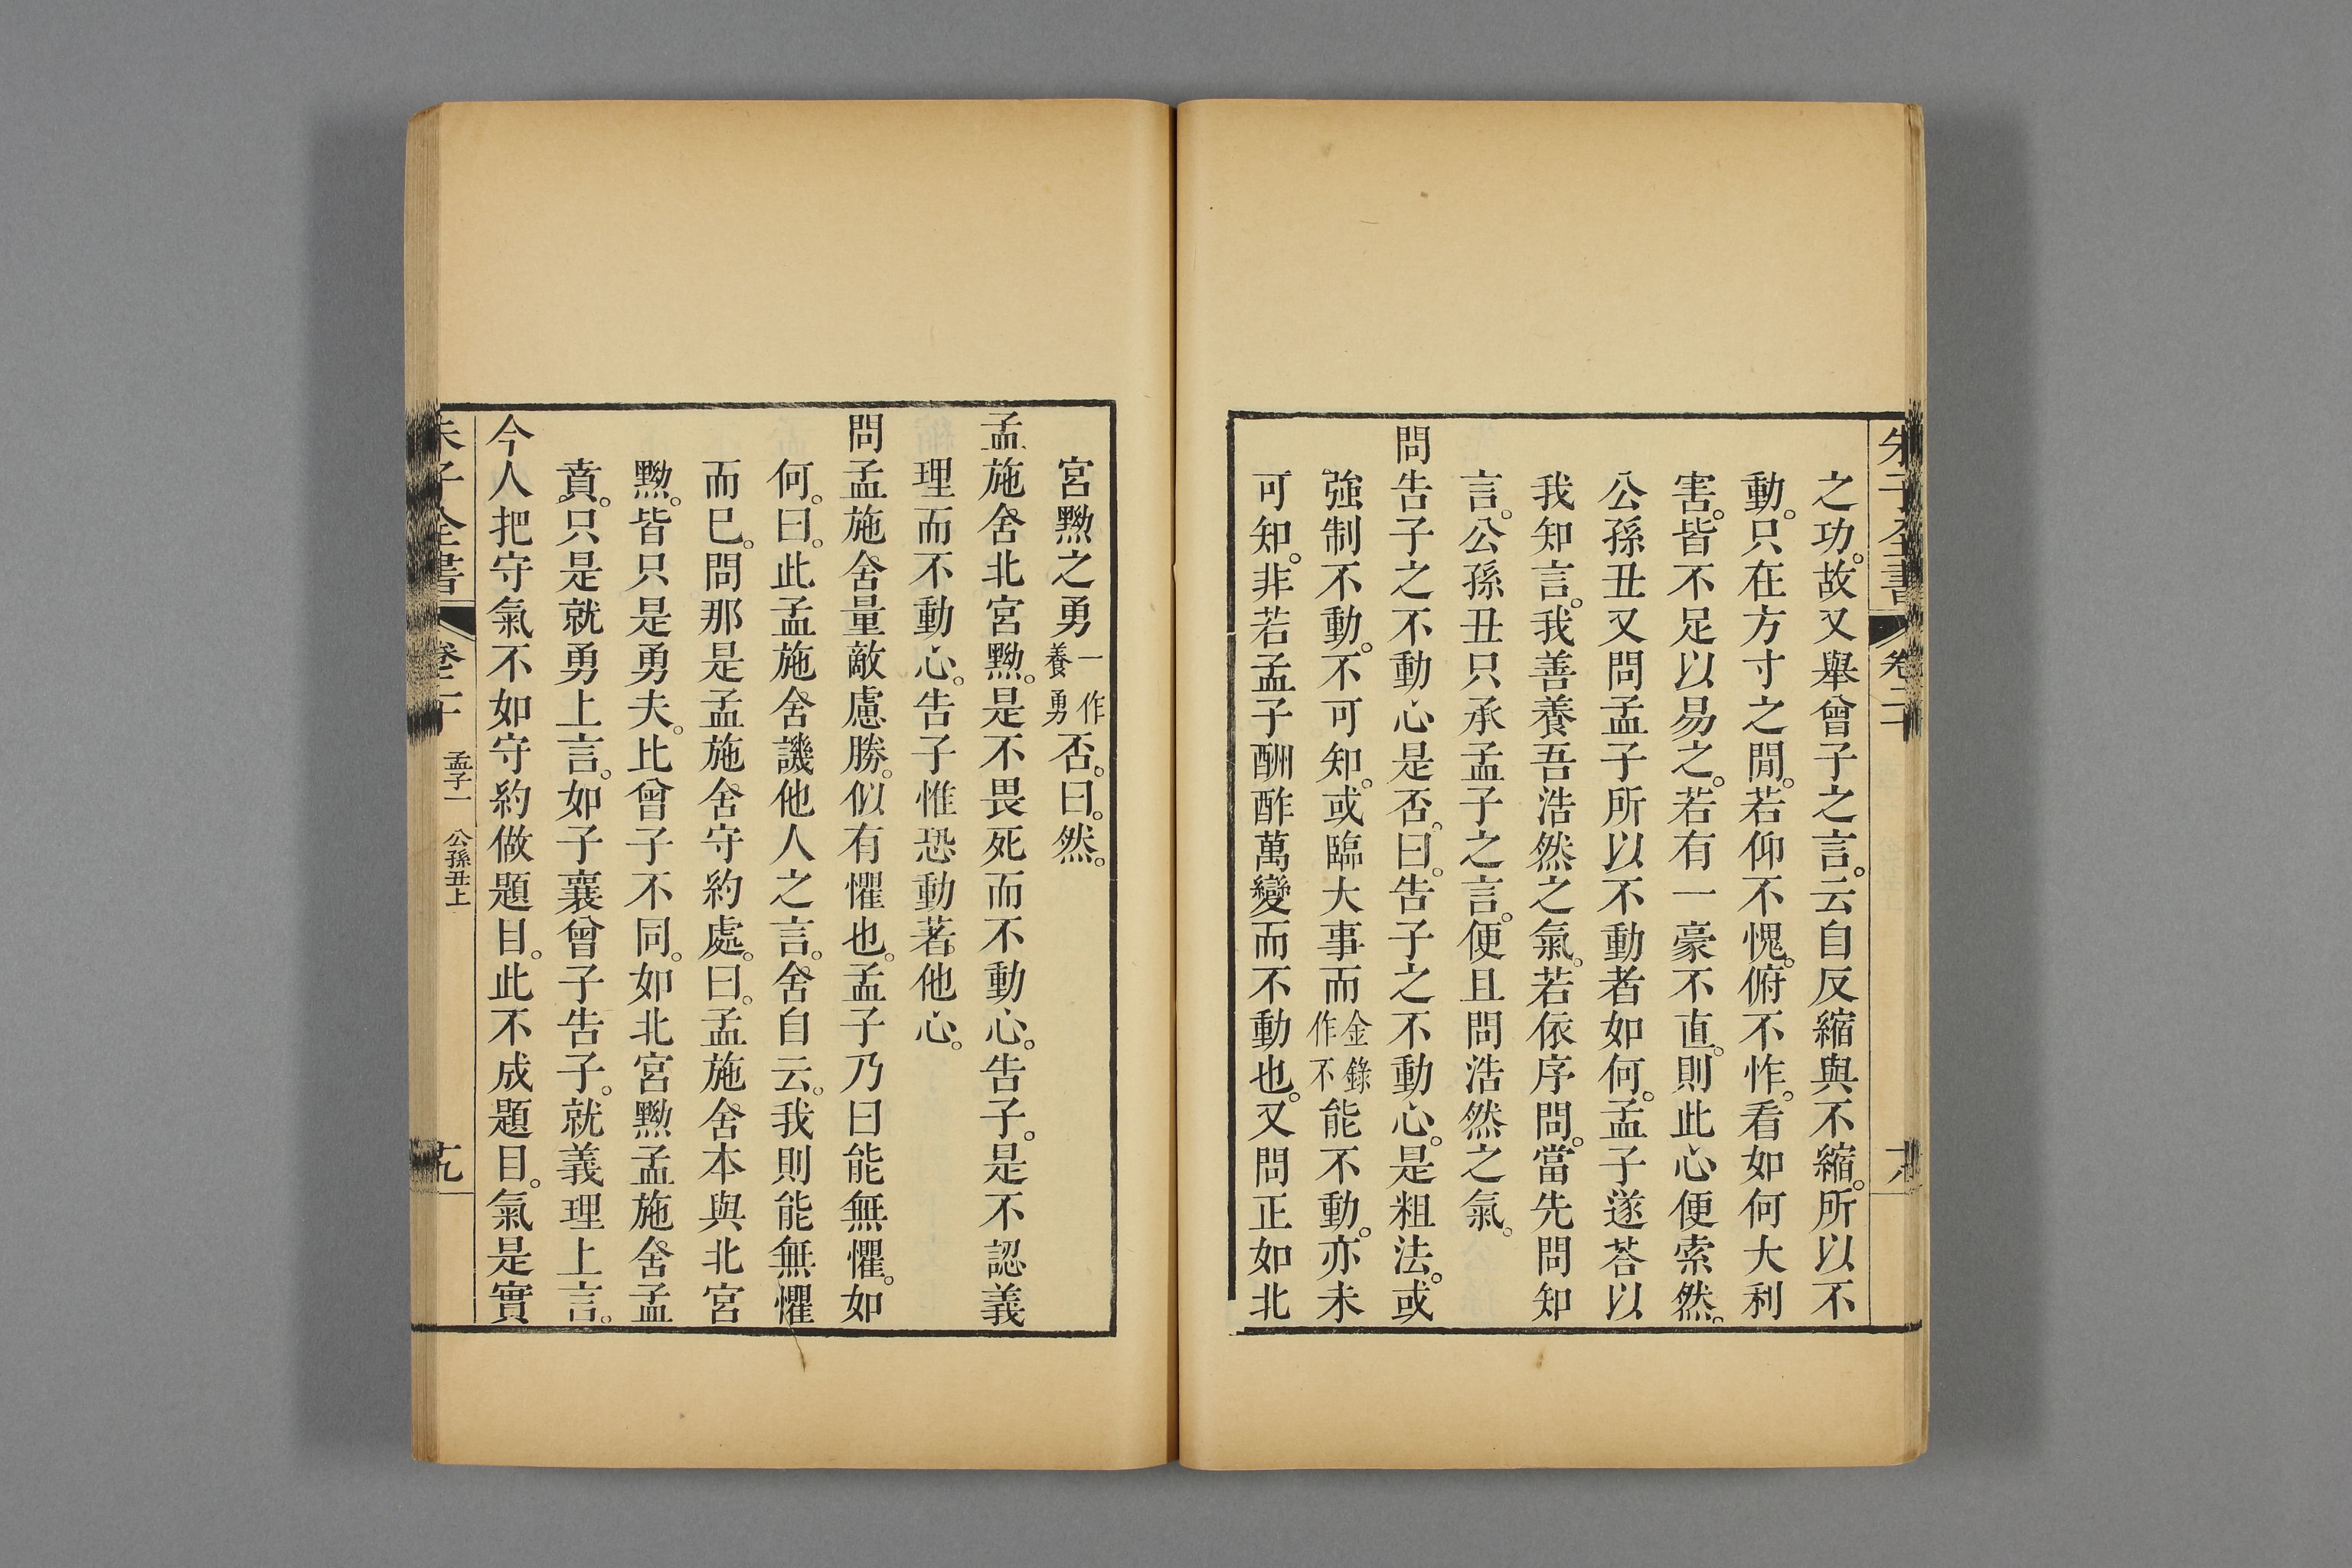 朱子全書 卷二十 十八
之功。故又舉曾子之言。云自反縮與不縮。所以不
動。只在方寸之閒。若仰不愧。俯不怍。看如何大利
害。皆不足以易之。若有一豪不直。則此心便索然。
公孫丑又問孟子所以不動者如何。孟子遂荅以
我知言。我善養吾浩然之氣。若依序問。當先問知
言。公孫丑只承孟子之言。便且問浩然之氣。
問告子之不動心是否。曰。告子之不動心。是粗法。或
強制不動。不可知。或臨大事而金錄作不能不動。亦未
可知。非若孟子酬酢萬變而不動也。又問正如北
宮黝之勇一作養勇否。曰。然。
孟施舍北宮黝。是不畏死而不動心。告子。是不認義
理而不動心。告子惟恐動著他心。
問孟施舍量敵慮勝。似有懼也。孟子乃曰能無懼。如
何。曰。此孟施舍譏他人之言。舍自云。我則能無懼
而已。問那是孟施舍守約處。曰。孟施舍本與北宮
黝。皆只是勇夫。比曾子不同。如北宮黝孟施舍孟
賁。只是就勇上言。如子襄曾子告子。就義理上言。
今人把守氣不如守約做題目。此不成題目。氣是實
朱子全書 卷二十 孟子一 公孫丑上 十九